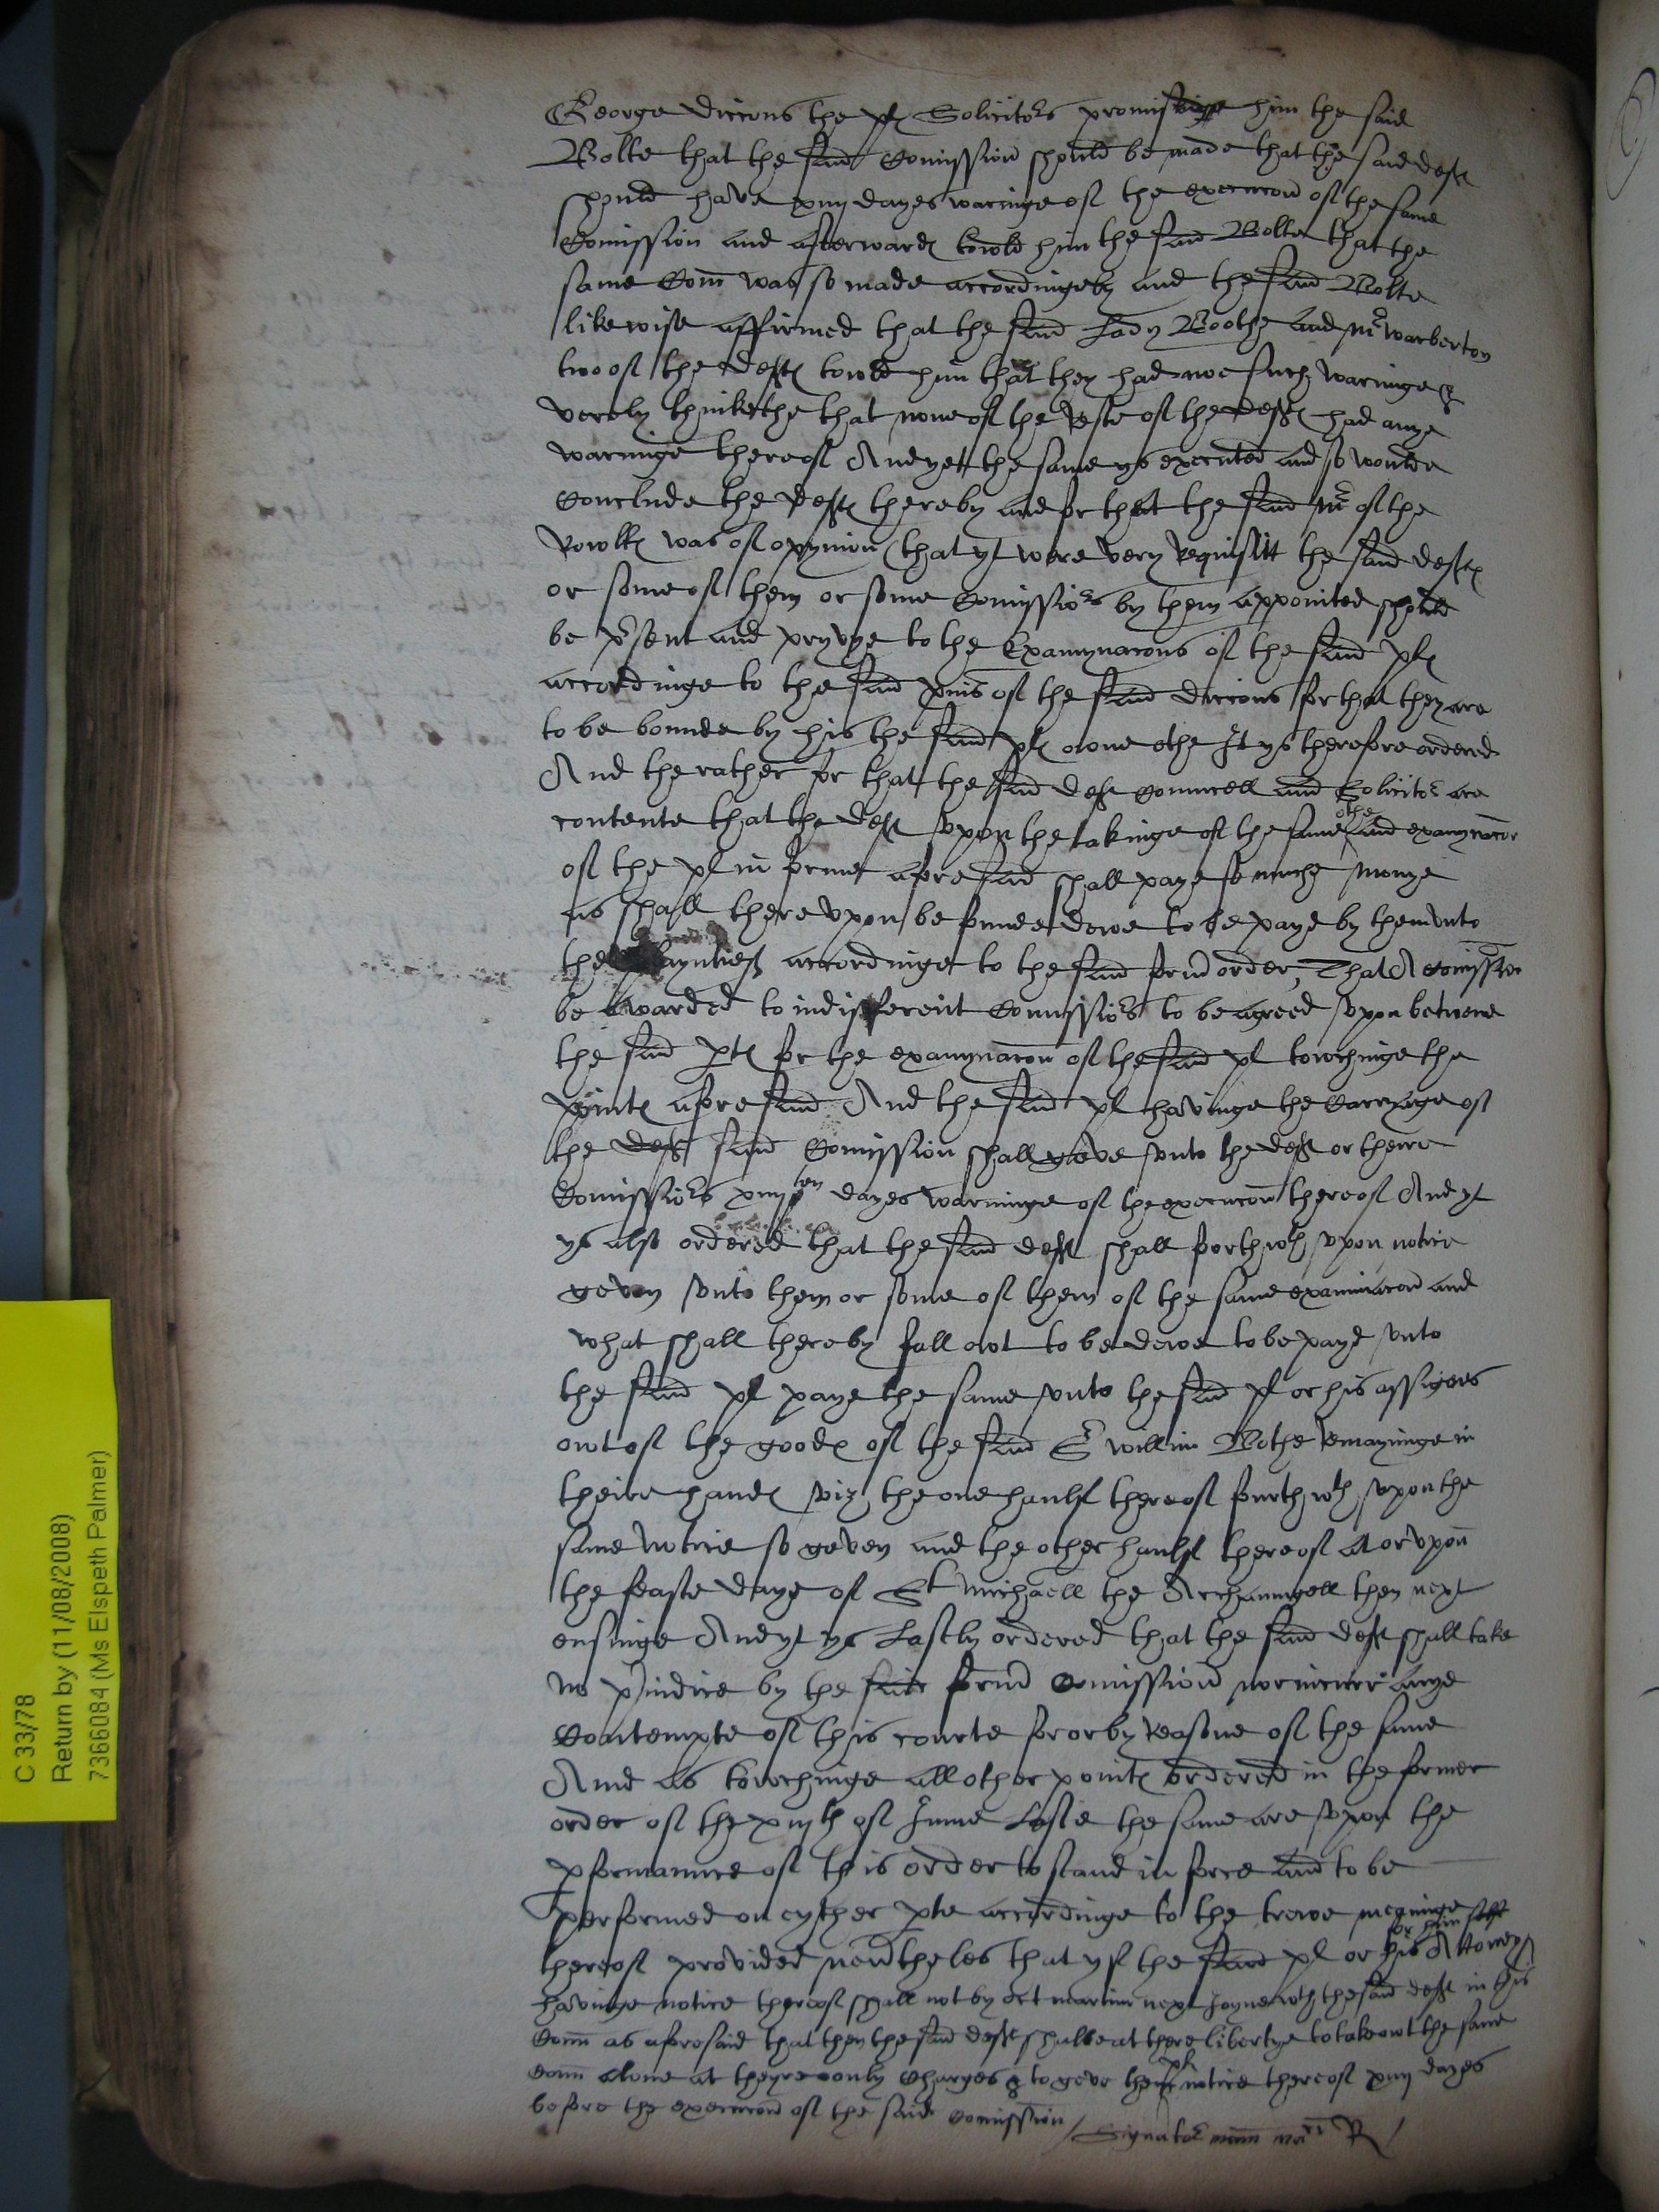 George Diccons the pl Solicitor promissinge him the said
Bolte that the said Comission should be made that the said deft
should have xiiij dayes warninge of the execucon of the same
Comission and afterward towld him the said Bolte that the
same Com was so made accordingely and the said Bolte
likewise affirmed that the said Lady Boothe and Mr Warberton
two of the deftes towld him that they had noe such warninge &
verely thinkethe that none of the reste of the deftes had anye
warninge thereof And yet the same ys executed and so woulde
Conclude the deftes thereby and for that the said Mr of the
Rowlles was of opynion that yt were very requisitt the said deftes
or some of them or some Comissiors by them appointed should
be psent and pryvye to the Examynacons of the said ples
accordinge to the said pmis of the said Diccons for that they are
to be bounde by his the said ples owne othe It ys therefore ordered
And the rather for that the said deft Councell and Solicitor are
contente that the deft upon the takinge of the same othe and examynacon
of the pl in forme aforesaid shall paye so muche monye
as shall thereupon be founde dewe to be payd by them unto
the playntief accordinge to the said formd order, That A Comission
be awarded to indifferent Comissiors to be agreed upon betwene
the said ptes for the examynacon of the said pl towchinge the
pointes aforesaid And the said pl havinge the Carryage of
the deft said Comission shall geve unto the deft or theire
Comissiors xiiij ten dayes warninge of the execucon thereof And yt
ys also ordered that the said deft shall forthwth upon notice
geven unto them or some of them of the same examinacon and
what shall thereby fall owt to be dewe to be payd unto
the said pl paye the same unto the said pl or his assignes
owt of the goodes of the said Sr Willim Bothe remayninge in
theire handes viz the one haulf thereof furthwth upon the
same notice so geven and the other haulf thereof at or upon
the feaste daye of St Michaell the Archanngell then next
ensuinge And yt ys Lastly ordered that the said deft shall take
no pjudice by the said formd Comission nor incurr anye
Contempte of this courte for or by reasone of the same
And as towchinge all other pointes ordered in the former
order of the xiijth of June Laste the same are upon the
pformaunce of this order to stand in force and to be
performed on eyther pte accordinge to the trewe meaninge
thereof provided nevtheles that yf the said pl or his Attorney for him self
havinge notice thereof shall not by oct martini next Joyne wth the said deft in this
Com as aforesaid that then the said deft shalbe at there libertye to take owt the same
Com alone at theyre only Charges & to geve the pl notice thereof xiiij dayes
before the execucon of the said Comission / Signator R /
C 33/78
Return by (11/08/2008)
7366084 (Ms Elspeth Palmer)